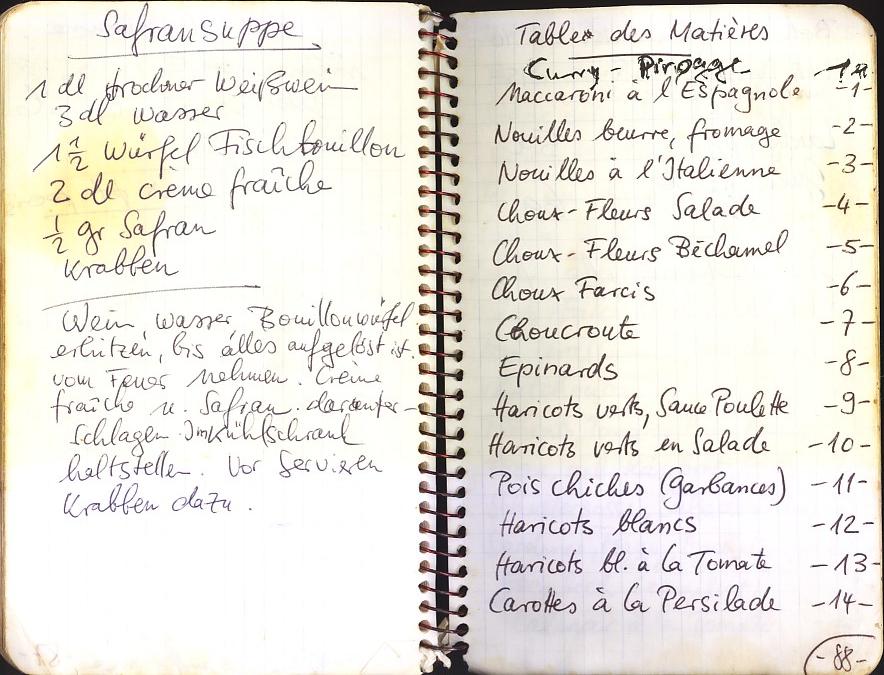 Safransuppe
1 dl trockner Weißwein
3 dl Wasser
1 1/2 Würfel Fischbouillon
2 dl crème fraîche
1/2 gr Safran
Krabben
Wein, Wasser, Bouillonwürfel
erhitzen, bis alles aufgelöst ist.
vom Feuer nehmen. Crème
fraîche u. Safran darunter-
schlagen. Im Kühlschrank
kaltstellen. Vor Servieren
Krabben dazu.
Table des Matières
Curry -
Maccaroni à l'Espagnole -1-
Nouilles beurre, fromage -2-
Nouilles à l'Italienne -3-
Choux-Fleurs Salade -4-
Choux-Fleurs Béchamel -5-
Choux Farcis -6-
Choucroute -7-
Epinards -8-
Haricots verts, Sauce Poulette -9-
Haricots verts en Salade -10-
Pois chiches (garbances) -11-
Haricots blancs -12-
Haricots bl. à la Tomate -13-
Carottes à la Persilade -14-
-88-